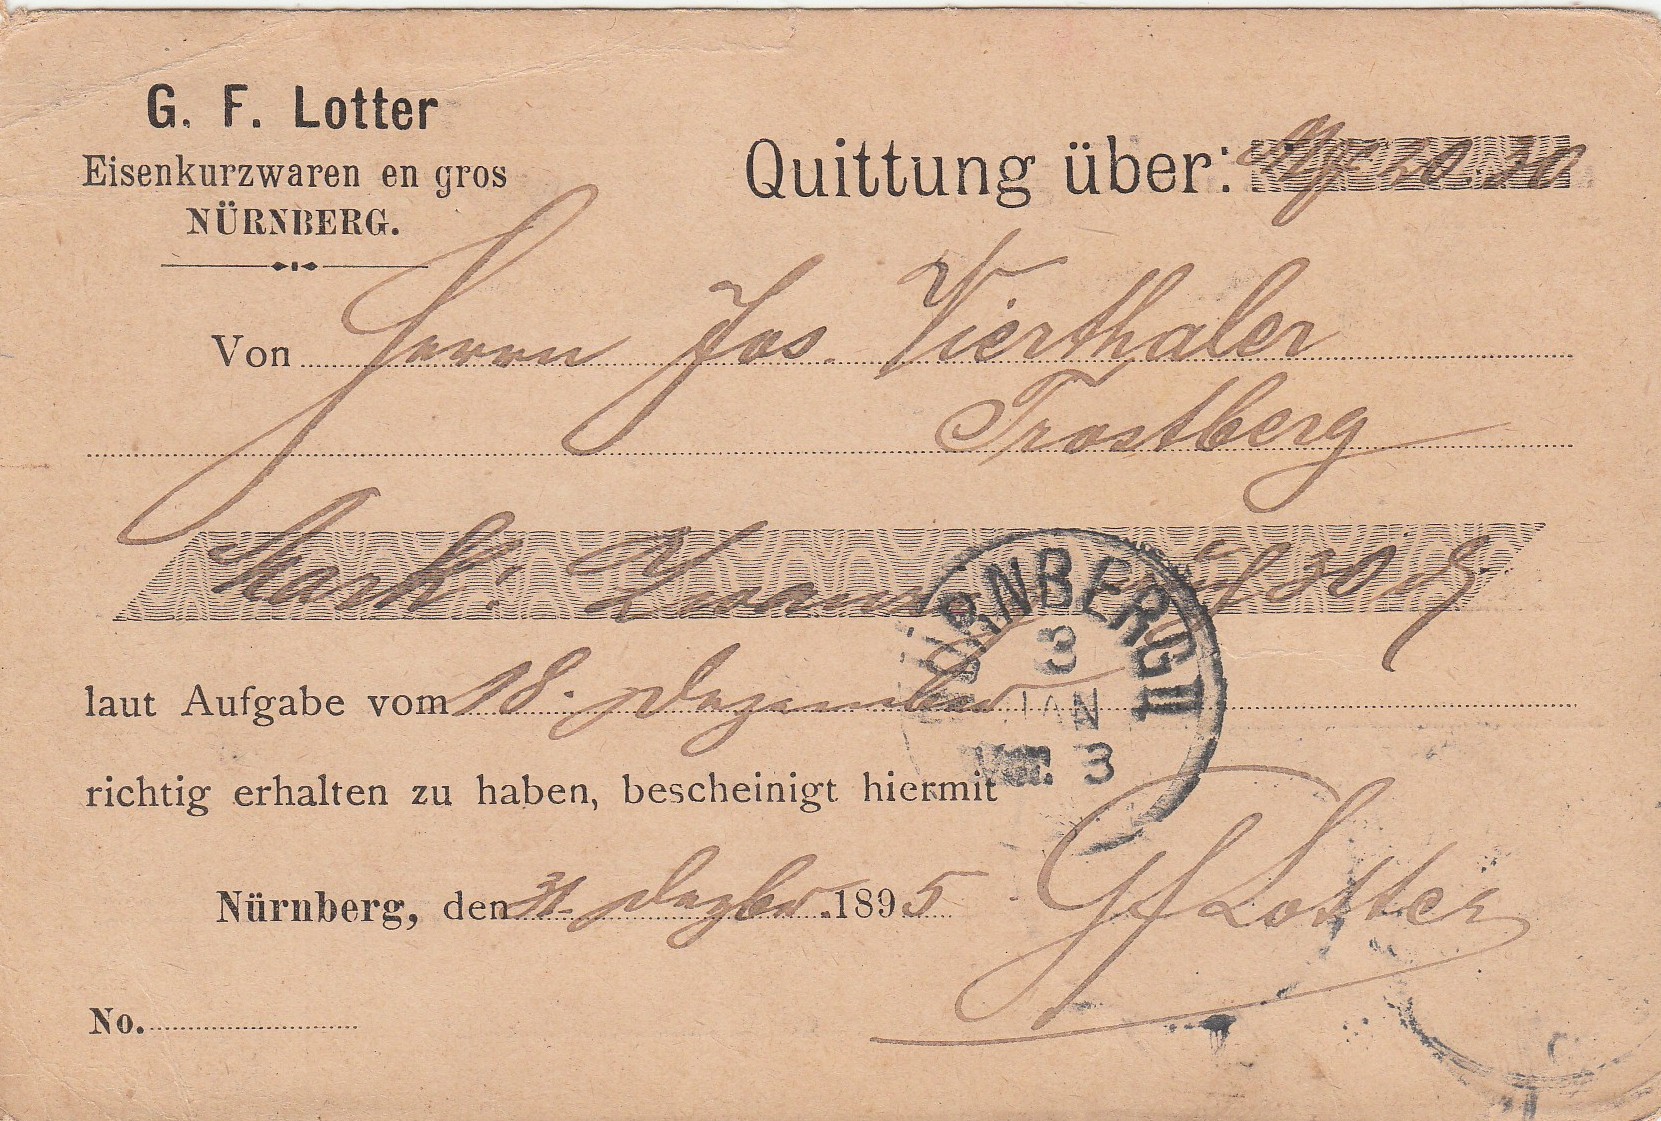 G. F. Lotter
Eisenkurzwaren en gros
NÜRNBERG.
Quittung über: M 20.30
Von Herrn Jos. Vierthaler
Trostberg
Mark: Zwanzig 30 ₰
laut Aufgabe vom 18. Dezember
richtig erhalten zu haben, bescheinigt hiermit
Nürnberg, den 31. Dezbr. 1895
GF Lotter
No.
NÜRNBERG II
3
JAN
Vor. 3